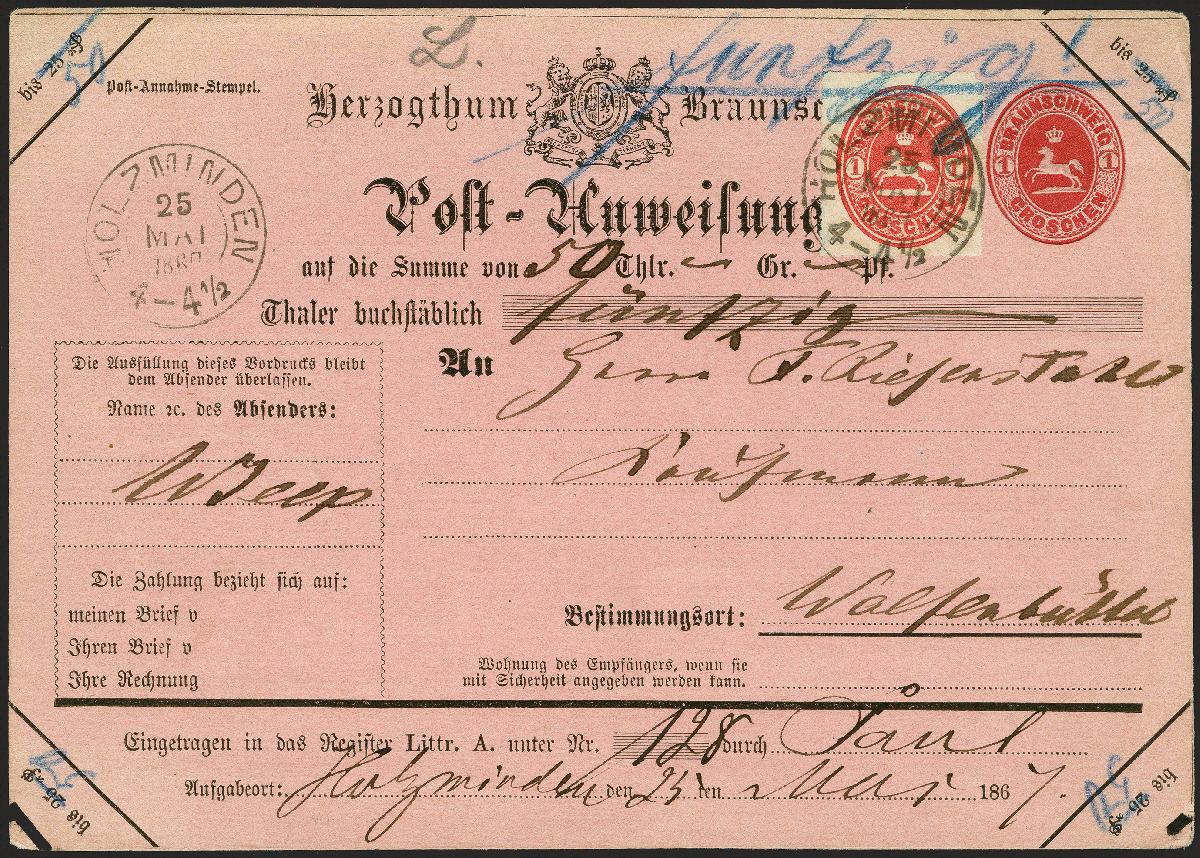 bis 25 ₰
50
L.
fünfzig!
bis 25 ₰
50
Post-Annahme-Stempel.
Herzogthum Braunsc
HOLZMINDEN
25
MAI
4-4½
HOLZMINDEN
25
MAI
4-4½
1 1
BRAUNSCHWEIG
1 1
GROSCHEN
Post-Anweisung
auf die Summe von 50 Thlr. — Gr. — Pf.
Thaler buchstäblich fünfzig
Die Ausfüllung dieses Vordrucks bleibt
dem Absender überlassen.
Name ꝛc. des Absenders:
An Herrn F. Riefenstahl
Kaufmann
Die Zahlung bezieht sich auf:
meinen Brief v
Ihren Brief v
Ihre Rechnung
Bestimmungsort: Wolfenbüttel
Wohnung des Empfängers, wenn sie
mit Sicherheit angegeben werden kann.
Eingetragen in das Register Littr. A. unter Nr. 128 durch
Aufgabeort: Holzminden den 25 ten Mai 1867.
bis 25 ₰
bis 25 ₰